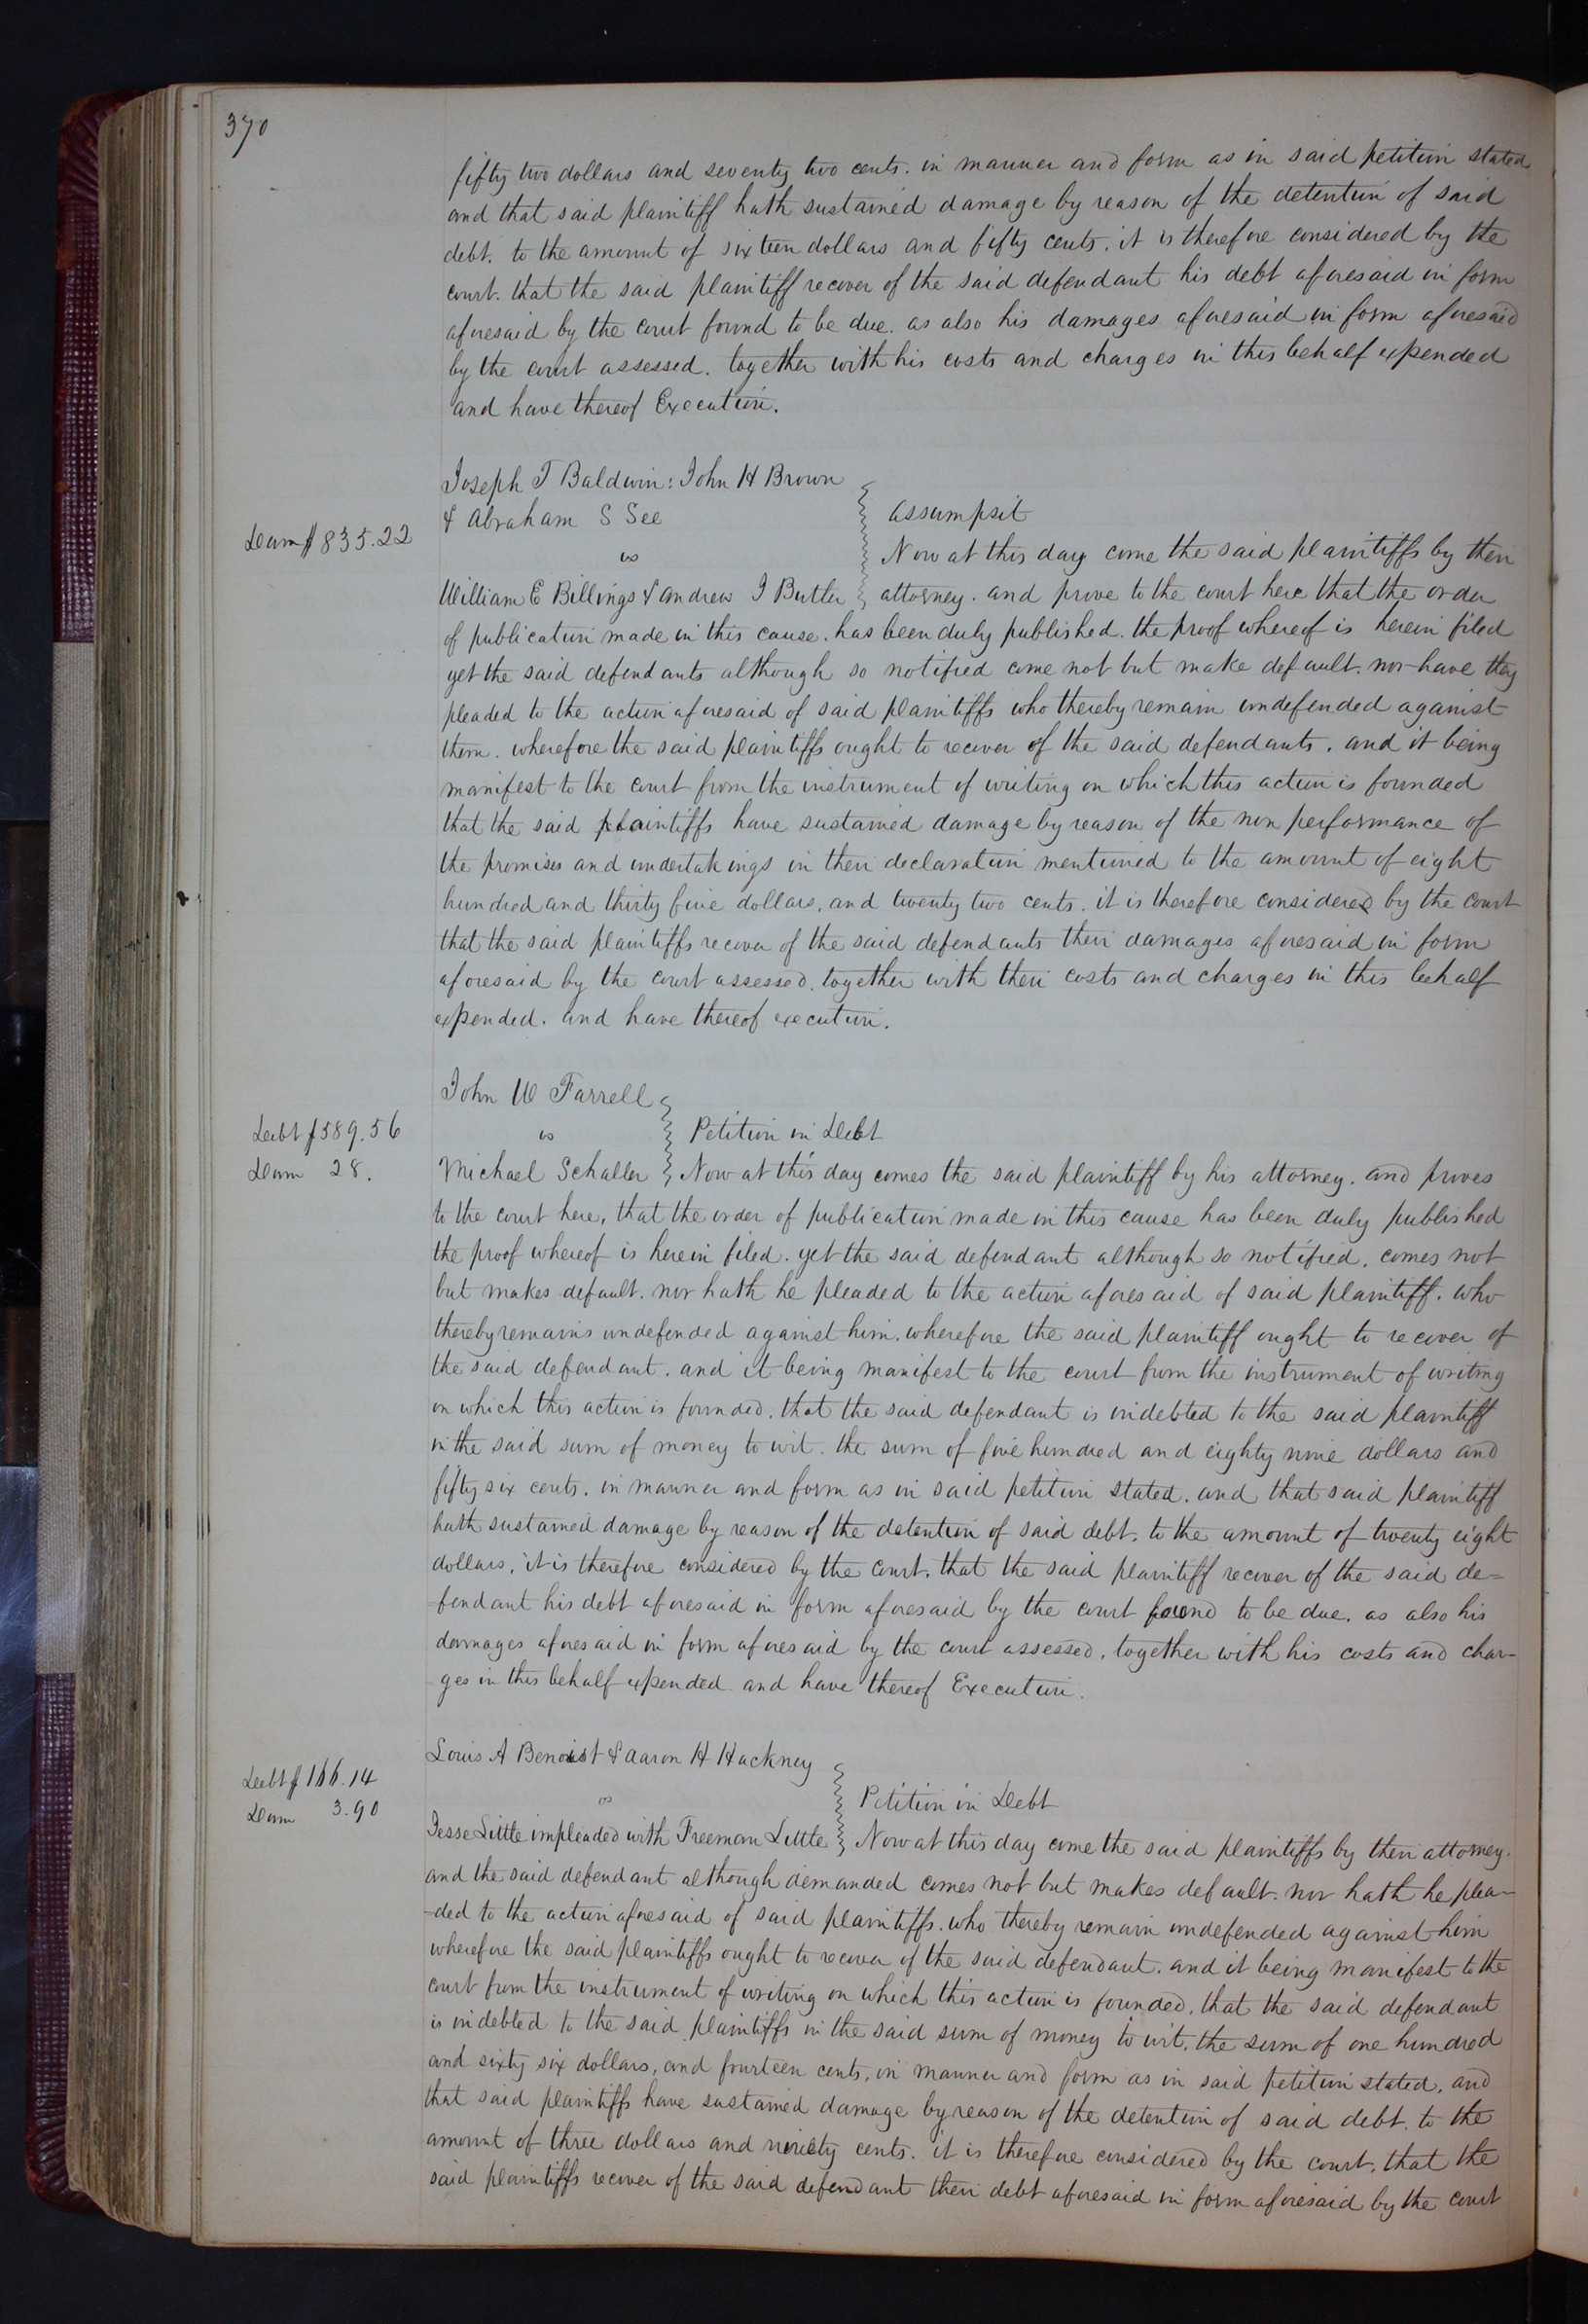 370
fifty two dollars and seventy two cents. in manner and form as in said petition stated
and that said plaintiff hath sustained damage by reason of the detention of said
debt. to the amount of sixteen dollars and fifty cents. it is therefore considered by the
court. that the said plaintiff recover of the said defendant his debt aforesaid in form
aforesaid by the court found to be due. as also his damages aforesaid in form aforesaid
by the court assessed. together with his costs and charges in this behalf expended
and have thereof Execution.
Joseph T Baldwin: John H Brown
& Abraham S See
Assumpsit
Dam $835.22
vs
Now at this day come the said plaintiffs by their
William E Billings & Andrew J Butler
attorney. and prove to the court here that the order
of publication made in this cause. has been duly published. the proof whereof is herein filed
yet the said defendants although so notified come not but make default. nor have they
pleaded to the action aforesaid of said plaintiffs who thereby remain undefended against
them. wherefore the said plaintiffs ought to recover of the said defendants. and it being
manifest to the court from the instrument of writing on which this action is founded
that the said plaintiffs have sustained damage by reason of the non performance of
the promises and undertakings in their declaration mentioned to the amount of eight
hundred and thirty five dollars, and twenty two cents. it is therefore considered by the court
that the said plaintiffs recover of the said defendants their damages aforesaid in form
aforesaid by the court assessed. together with their costs and charges in this behalf
expended. and have thereof execution.
John W Farrell
vs
Petition in Debt
Debt $589.56
Dam 28.
Michael Schaller
Now at this day comes the said plaintiff by his attorney. and proves
to the court here, that the order of publication made in this cause has been duly published
the proof whereof is herein filed. yet the said defendant although so notified, comes not
but makes default. nor hath he pleaded to the action aforesaid of said plaintiff. who
thereby remains undefended against him. wherefore the said plaintiff ought to recover of
the said defendant. and it being manifest to the court from the instrument of writing
on which this action is founded. that the said defendant is indebted to the said plaintiff
in the said sum of money to wit. the sum of five hundred and eighty nine dollars and
fifty six cents. in manner and form as in said petition stated. and that said plaintiff
hath sustained damage by reason of the detention of said debt. to the amount of twenty eight
dollars, it is therefore considered by the court. that the said plaintiff recover of the said de=
=fendant his debt aforesaid in form aforesaid by the court found to be due. as also his
damages aforesaid in form aforesaid by the court assessed. together with his costs and char-
ges in this behalf expended and have thereof Execution.
Louis A Benoist & Aaron H Hackney
Debt $166.14
Dam 3.90
vs
Petition in Debt
Jesse Little impleaded with Freeman Little
Now at this day come the said plaintiffs by their attorney.
and the said defendant although demanded comes not but makes default. nor hath he plea-
-ded to the action aforesaid of said plaintiffs. who thereby remain undefended against him
wherefore the said plaintiffs ought to recover of the said defendant. and it being manifest to the
court from the instrument of writing on which this action is founded. that the said defendant
is indebted to the said plaintiffs in the said sum of money to wit. the sum of one hundred
and sixty six dollars, and fourteen cents, in manner and form as in said petition stated, and
that said plaintiffs have sustained damage by reason of the detention of said debt. to the
amount of three dollars and ninety cents. it is therefore considered by the court. that the
said plaintiffs recover of the said defendant their debt aforesaid in form aforesaid by the court